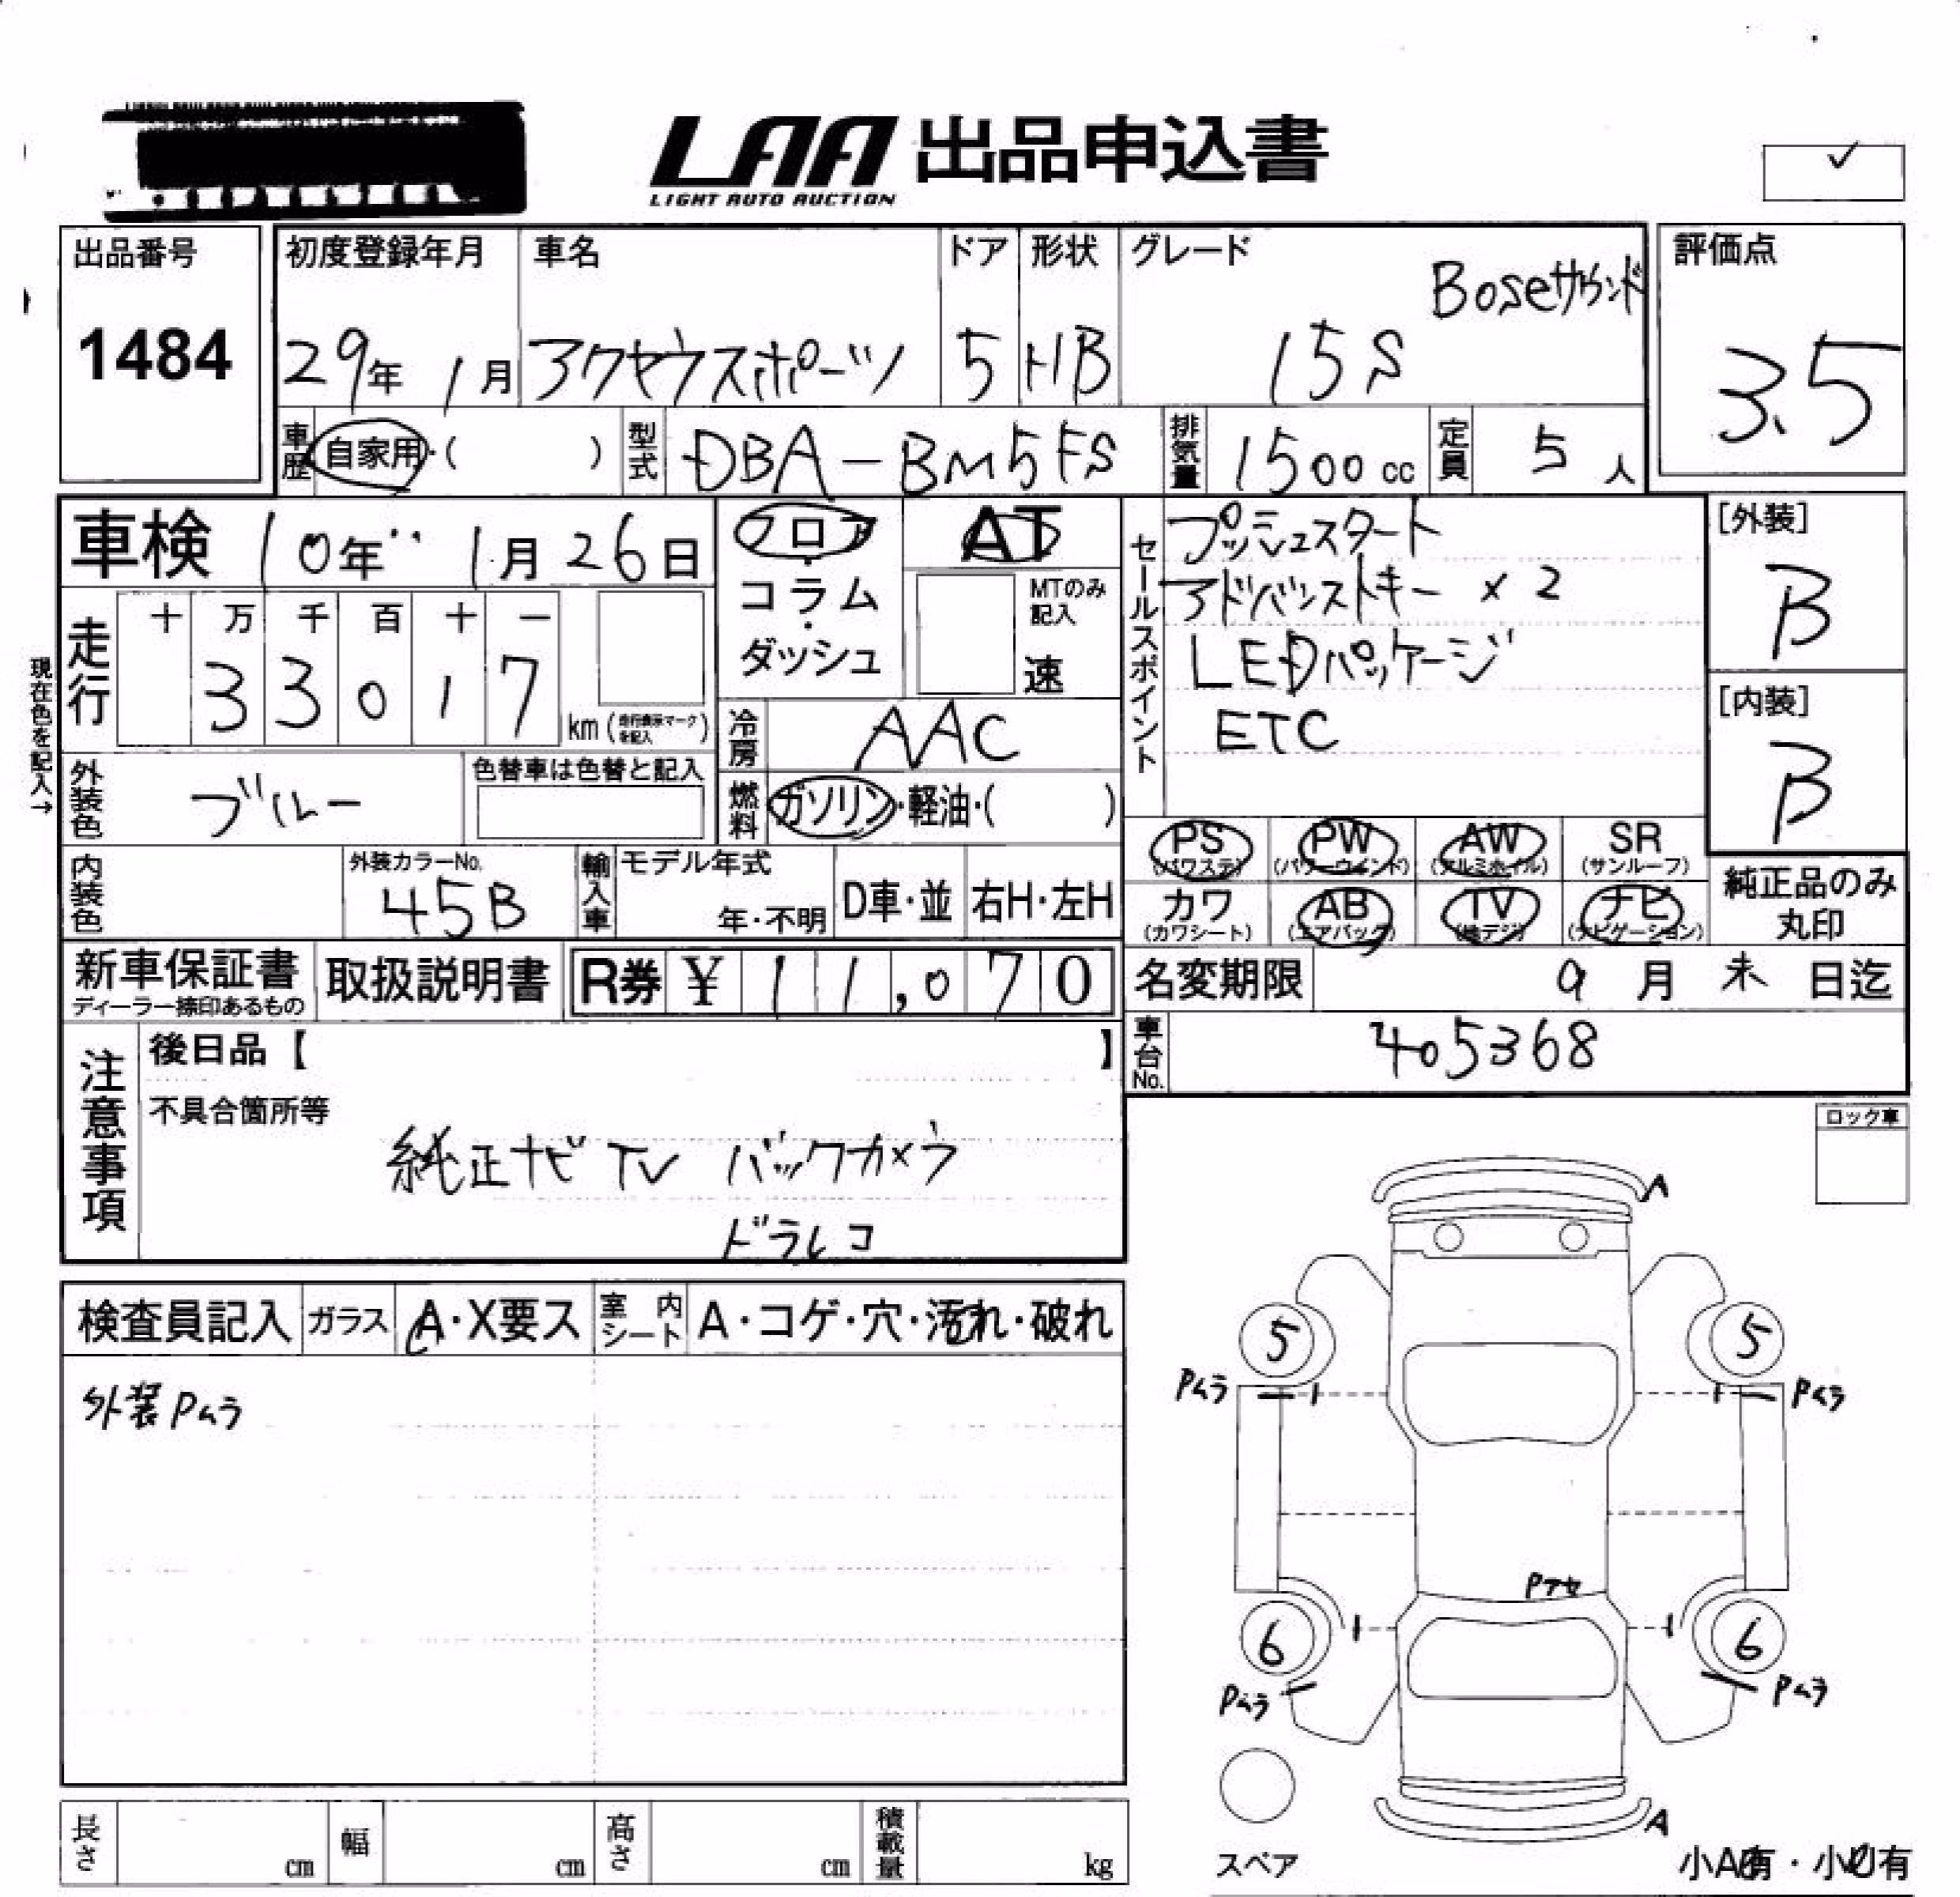 LAA 出品申込書
LIGHT AUTO AUCTION
✓
出品番号
1484
初度登録年月
29年 1月
車名
アクセラスポーツ
ドア
5
形状
HB
グレード
Boseサウンド
15S
評価点
3.5
車歴
自家用・( )
型式
DBA-BM5FS
排気量
1500cc
定員
5人
車検 10年 1月 26日
フロア・コラム・ダッシュ
AT
MTのみ記入
速
セールスポイント
プッシュスタート
アドバンストキー ×2
LEDパッケージ
ETC
[外装]
B
[内装]
B
現在色を記入→
走行
十 万 千 百 十 一
3 3 0 1 7
km (走行表示マークを記入)
冷房
AAC
外装色
ブルー
色替車は色替と記入
燃料
ガソリン・軽油・( )
PS (パワステ)
PW (パワーウインド)
AW (アルミホイル)
SR (サンルーフ)
カワ (カワシート)
AB (エアバック)
TV (地デジ)
ナビ (ナビゲーション)
純正品のみ丸印
内装色
外装カラーNo.
45B
輸入車
モデル年式
年・不明
D車・並
右H・左H
新車保証書
ディーラー捺印あるもの
取扱説明書
R券 ¥ 11,070
名変期限 9月 末 日迄
車台No.
405368
注意事項
後日品【 】
不具合箇所等
純正ナビ TV バックカメラ
ドラレコ
ロック車
検査員記入
ガラス
A・X要ス
室内シート
A・コゲ・穴・汚れ・破れ
外装Pムラ
A
5 5
Pムラ Pムラ
Pアセ
6 6
Pムラ Pムラ
A
スペア
小A有・小U有
長さ cm
幅 cm
高さ cm
積載量 kg